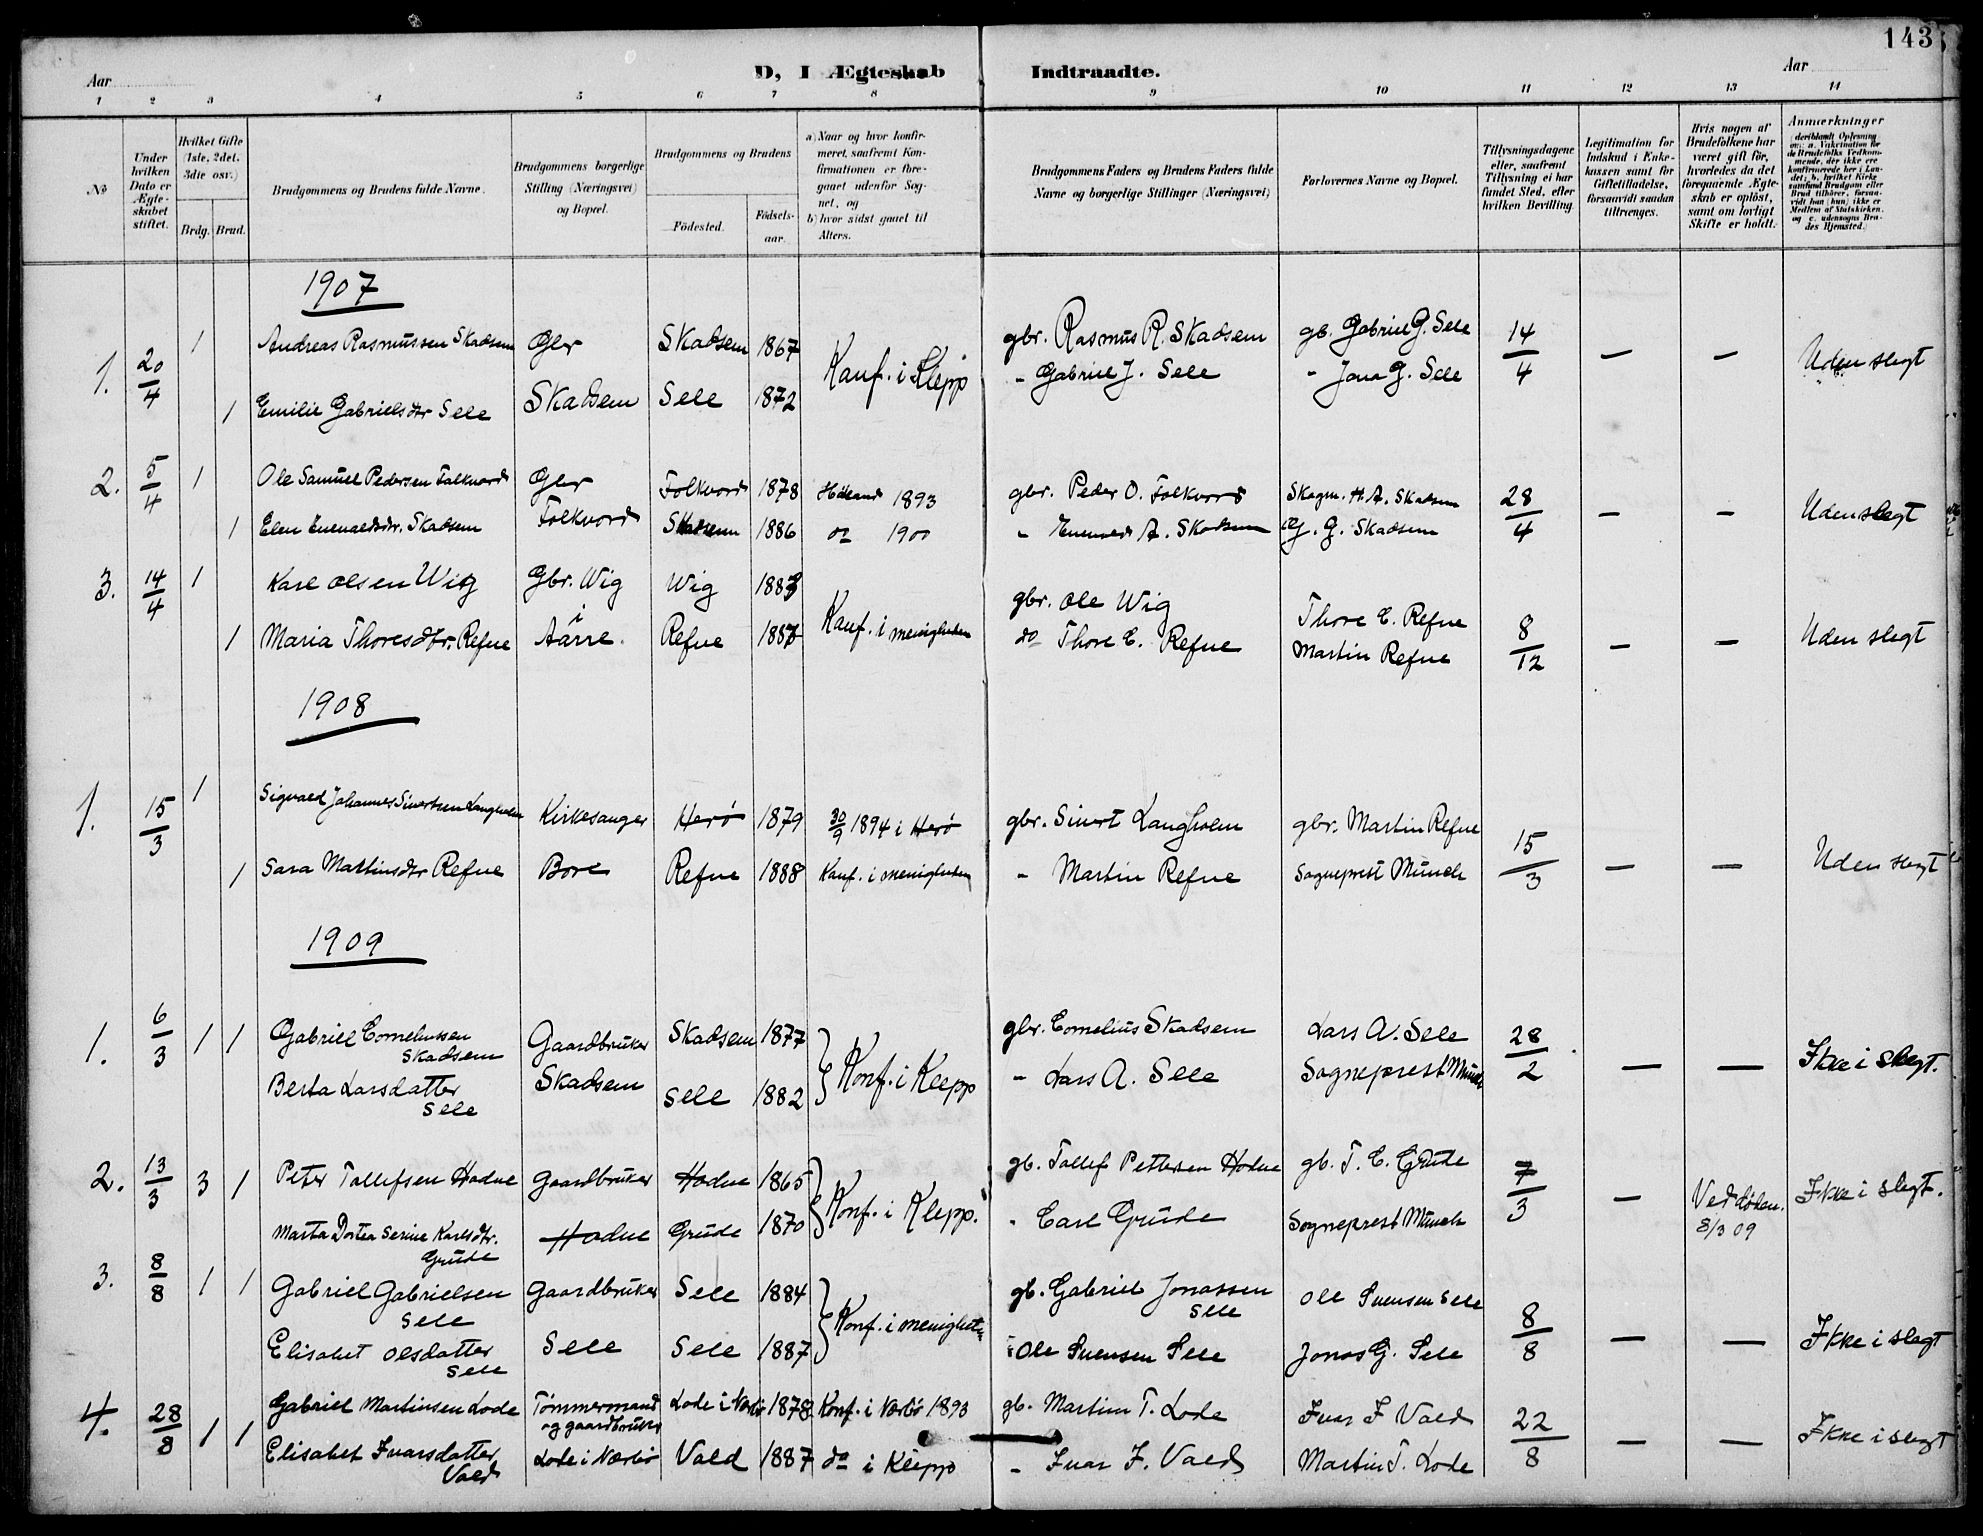 143
D, I Ægteskab Indtraadte.
Aar Aar
1 2 3 4 5 6 7 8 9 10 11 12 13 14
No
Under hvilken Dato er Ægteskabet stiftet.
Hvilket Gifte (1ste, 2det, 3die osv.)
Brdg. Brud.
Brudgommens og Brudens fulde Navne.
Brudgommens borgerlige Stilling (Næringsvei) og Bopæl.
Brudgommens og Brudens
Fødested. Fødselsaar.
a) Naar og hvor konfirmeret, saafremt Konfirmationen er foregaaet udenfor Sognet, og
b) hvor sidst gaaet til Alters.
Brudgommens Faders og Brudens Faders fulde Navne og borgerlige Stillinger (Næringsvei)
Forlovernes Navne og Bopæl.
Tillysningsdagene eller, saafremt Tillysning ei har fundet Sted, efter hvilken Bevilling.
Legitimation for Indskud i Enkekassen samt for Giftetilladelse, forsaavidt saadan tiltrænges.
Hvis nogen af Brudefolkene har været gift før, hvorledes da det foregaaende Ægteskab er opløst, samt om lovligt Skifte er holdt.
Anmærkninger
1907
1. 20/4 1 Andreas Rasmussen Skadsem Gbr Skadsem 1867 Konf. i Klepp gbr. Rasmus R. Skadsem gb. Gabriel G. Sele 14/4 — — Uden slegt
1 Emilie Gabrielsdtr Sele Skadsem Sele 1872 - Gabriel J. Sele - Jona G. Sele
2. 5/4 1 Ole Samuel Pedersen Folkvord Gbr Folkvord 1878 Høiland 1893 gbr. Peder O. Folkvord Skogm. H. A. Skadsem 28/4 — — Uden slegt
1 Elen Enevaldsdtr. Skadsem Folkvord Skadsem 1886 do 1900 - Enevald A. Skadsem G. G. Skadsem
3. 14/4 1 Karl Olsen Wig Gbr. Wig Wig 1883 Konf. i menigheden gbr. Ole Wig Thore E. Refne 8/12 — — Uden slegt
1 Maria Thoresdtr. Refne i Aarre. Refne do Thore E. Refne Martin Refne
1908
1. 15/3 1 Sigvald Johannes Sivertsen Langholm Kirkesanger Herø 1879 30/9 1894 i Herø gbr. Sivert Langholm gbr. Martin Refne 15/3 — — Uden slegt
1 Sara Martinsdtr Refne Bore Refne 1888 Konf. i menigheden - Martin Refne Sogneprest Münch
1909
1. 6/3 1 1 Gabriel Corneliussen Skadsem Gaardbruker Skadsem 1877 Konf. i Klepp gbr. Cornelius Skadsem Lars A. Sele 28/2 — — Ikke i slegt.
Berta Larsdatter Sele Skadsem Sele 1882 - Lars A. Sele Sogneprest Münch
2. 13/3 3 1 Peter Tollefsen Hodne Gaardbruker Hodne 1865 Konf. i Klepp. gb. Tollef Pettersen Hodne gb. T. C. Grude 7/3 — Ved døden. 8/3 09 Ikke i slegt.
Marta Dortea Serine Karlsdtr. Grude Hodne Grude 1870 - Carl Grude Sogneprest Münch
3. 8/8 1 1 Gabriel Gabrielsen Sele Gaardbruker Sele 1884 Konf. i menighet gb. Gabriel Jonassen Sele Ole Svensen Sele 8/8 — — Ikke i slegt
Elisabet Olsdatter Sele Sele Sele 1887 - Ole Svensen Sele Jonas G. Sele
4. 28/8 1 1 Gabriel Martinsen Lode Tømmermand og gaardbruker Lode i Nærbø 1878 Konf. i Nærbø 1893 gb. Martin T. Lode Ivar I Vold 22/8 — — Ikke i slegt
Elisabet Ivarsdatter Vold Lode i Nærbø Vold 1887 do i Klepp - Ivar I. Vold Martin T. Lode